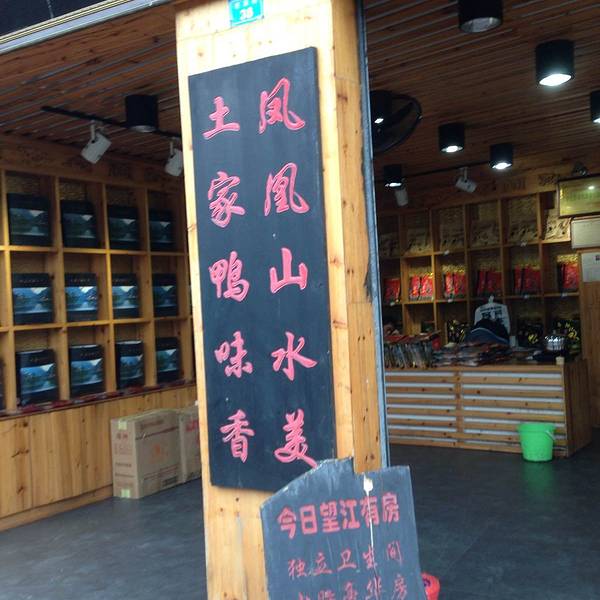 38
凤凰山水美
土家鸭味香
今日望江有房
独立卫生间